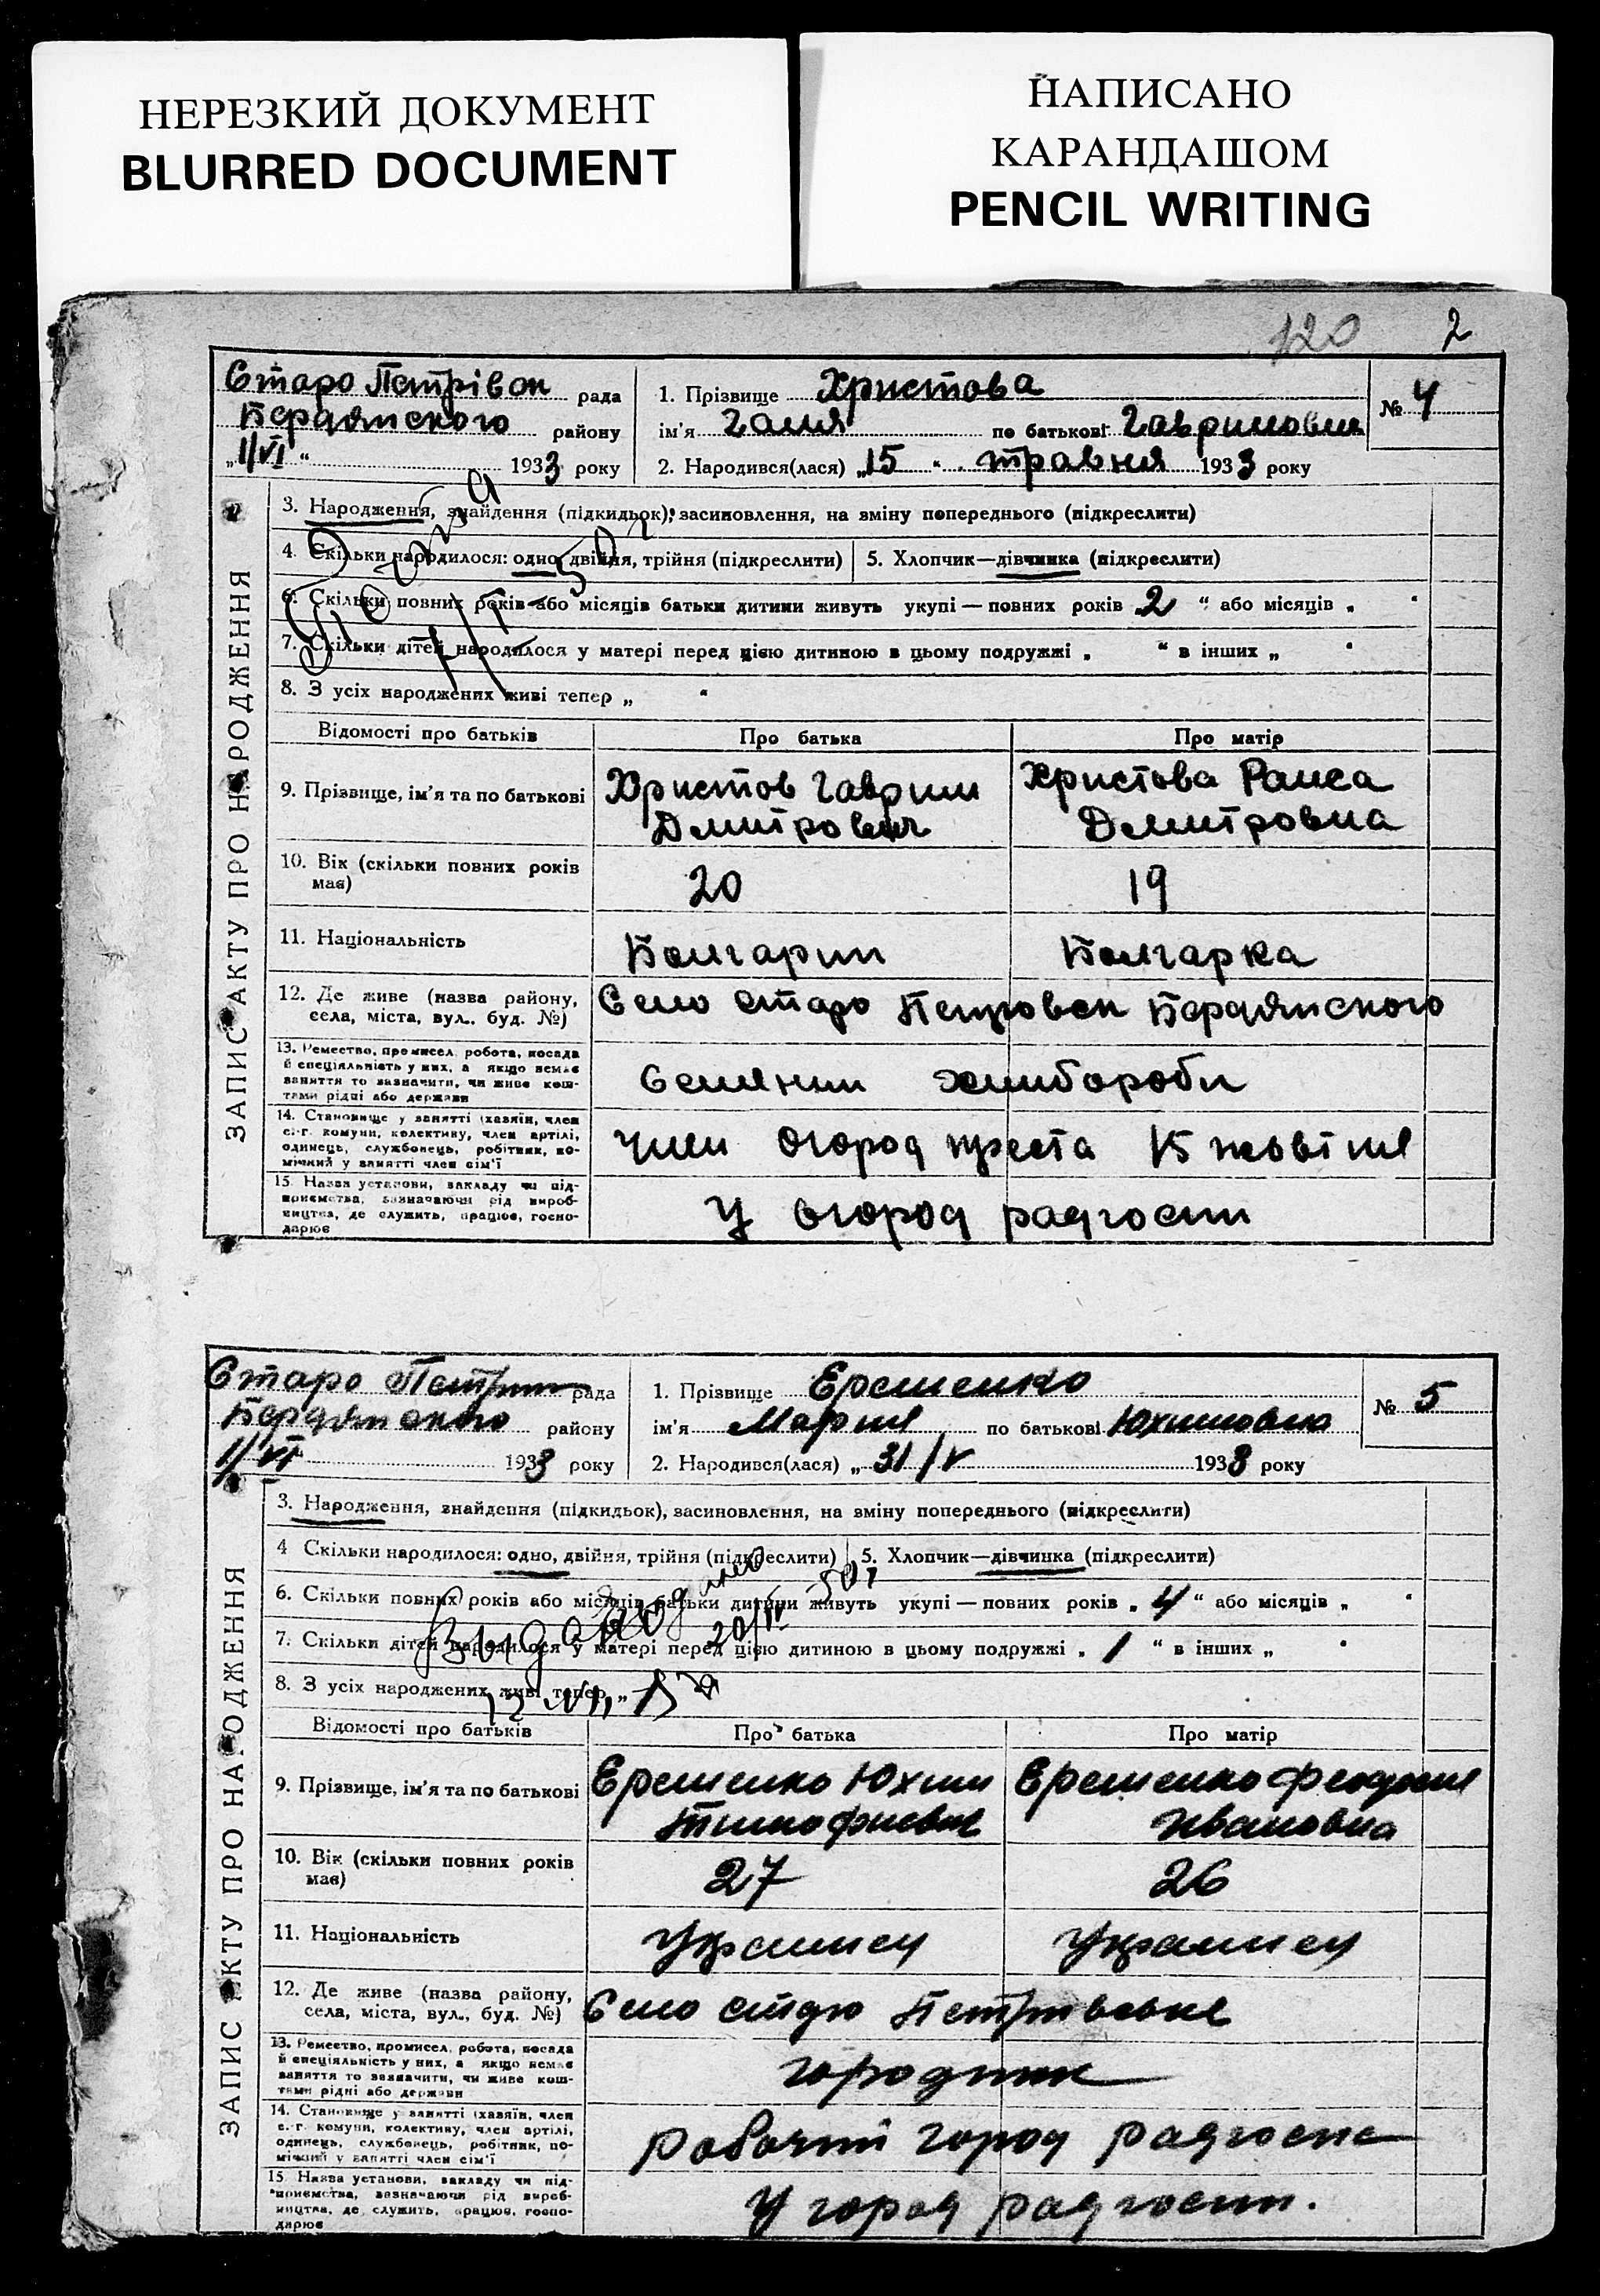 НЕРЕЗКИЙ ДОКУМЕНТ
BLURRED DOCUMENT
НАПИСАНО
КАРАНДАШОМ
PENCIL WRITING
120 2
Старо Петрівск рада
Бердянского району
„1/VI“ 1933 року
1. Прізвище Христова
ім'я Галя по батькові Гавриловна
2. Народився(лася) „15“ травня 1933 року
№ 4
ЗАПИС АКТУ ПРО НАРОДЖЕННЯ
3. Народження, знайдення (підкидьок), засиновлення, на зміну попереднього (підкреслити)
4. Скільки народилося: одно, двійня, трійня (підкреслити) 5. Хлопчик—дівчинка (підкреслити)
6. Скільки повних років або місяців батьки дитини живуть укупі — повних років „2“ або місяців „ “
7. Скільки дітей народилося у матері перед цією дитиною в цьому подружжі „ “ в інших „ “
8. З усіх народжених живі тепер „ “
Відомості про батьків Про батька Про матір
9. Прізвище, ім'я та по батькові
Христов Гаврил
Дмитрович
Христова Раиса
Дмитровна
10. Вік (скільки повних років
має)
20 19
11. Національність Болгарин Болгарка
12. Де живе (назва району,
села, міста, вул., буд. №)
Село Старо Петровск Бердянского
13. Ремество, промисел, робота, посада
й спеціяльність у них, а якщо немає
заняття то зазначити, чи живе кош-
тами рідні або держави
Селянин хлибороби
14. Становище у занятті (хазяїн, член
с.-г. комуни, колективу, член артілі,
одинець, службовець, робітник, по-
мічний у занятті член сім'ї
член огород треста
15. Назва установи, закладу чи під-
приємства, зазначаючи рід вироб-
ництва, де служить, працює, госпо-
дарює
У огород радгоспи
Старо Петрив рада
Бердянского району
1/VI 1933 року
1. Прізвище Ерешенко
ім'я Мария по батькові Юхимовна
2. Народився(лася) „31/V 1933 року
№ 5
ЗАПИС АКТУ ПРО НАРОДЖЕННЯ
3. Народження, знайдення (підкидьок), засиновлення, на зміну попереднього (підкреслити)
4 Скільки народилося: одно, двійня, трійня (підкреслити) 5. Хлопчик—дівчинка (підкреслити)
6. Скільки повних років або місяців батьки дитини живуть укупі — повних років „4“ або місяців „ “
7. Скільки дітей народилося у матері перед цією дитиною в цьому подружжі „1“ в інших „ “
8. З усіх народжених живі тепер „
Відомості про батьків Про батька Про матір
9. Прізвище, ім'я та по батькові
Ерешенко Юхим
Тимофиевич
Ерешенко Феодосия
Ивановна
10. Вік (скільки повних років
має)
27 26
11. Національність Украинец Украинец
12. Де живе (назва району,
села, міста, вул., буд. №)
Село Старо Петривське
13. Ремество, промисел, робота, посада
й спеціяльність у них, а якщо немає
заняття то зазначити, чи живе кош-
тами рідні або держави
городник
14. Становище у занятті (хазяїн, член
с.-г. комуни, колективу, член артілі,
одинець, службовець, робітник, по-
мічний у занятті член сім'ї
рабочий город радгоспа
15 Назва установи, закладу чи під-
приємства, зазначаючи рід вироб-
ництва, де служить, працює, госпо-
дарює
У город радгоспи.